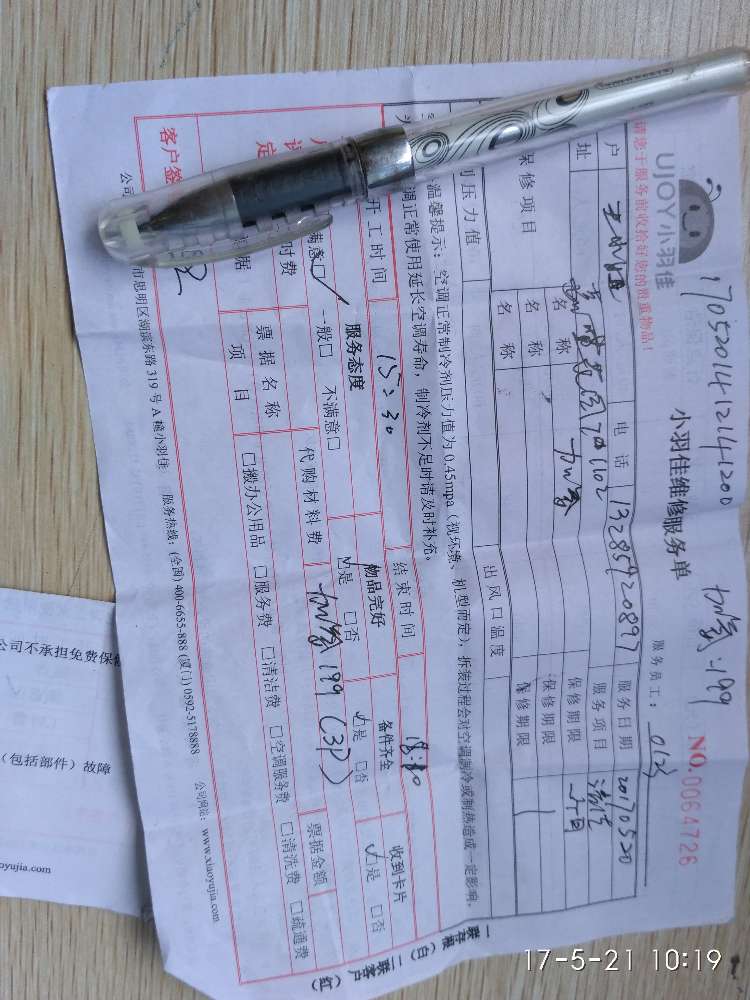 17052014121141200 加氟:199
UJOY小羽佳
小羽佳维修服务单
NO.0064726
请您于服务前收拾好您的贵重物品!
服务员工: 0123
户
电话 13285920897 服务日期 20170520
址
702102
服务项目 清洗
保修项目
名称 加氟 保修期限 一个月
名称 保修期限
名称 保修期限
压力值
出风口温度
温馨提示:空调正常制冷剂压力值为0.45mpa(视环境、机型而定),拆装过程会对空调制冷或制热造成一定影响,
调正常使用延长空调寿命,制冷剂不足时请及时补充。
开工时间 15:30 结束时间
服务态度 物品完好 备件齐全 收到卡片
满意□ 一般□ 不满意□ □是 □否 □是 □否 □是 □否
定
时费 代购材料费 加氟199(3P) 票据金额
据 票据名称
项目 □搬办公用品 □服务费 □清洁费 □空调服务费 □清洗费 □疏通费
客户签
公司
市思明区湖滨东路319号A幢小羽佳 服务热线:(全国)400-6655-888(厦门)0592-5178888 公司网站:www.xiaoyujia.com
一联存根(白)二联客户(红)
公司不承担免费保
(包括部件)故障
oyujia.com
17-5-21 10:19